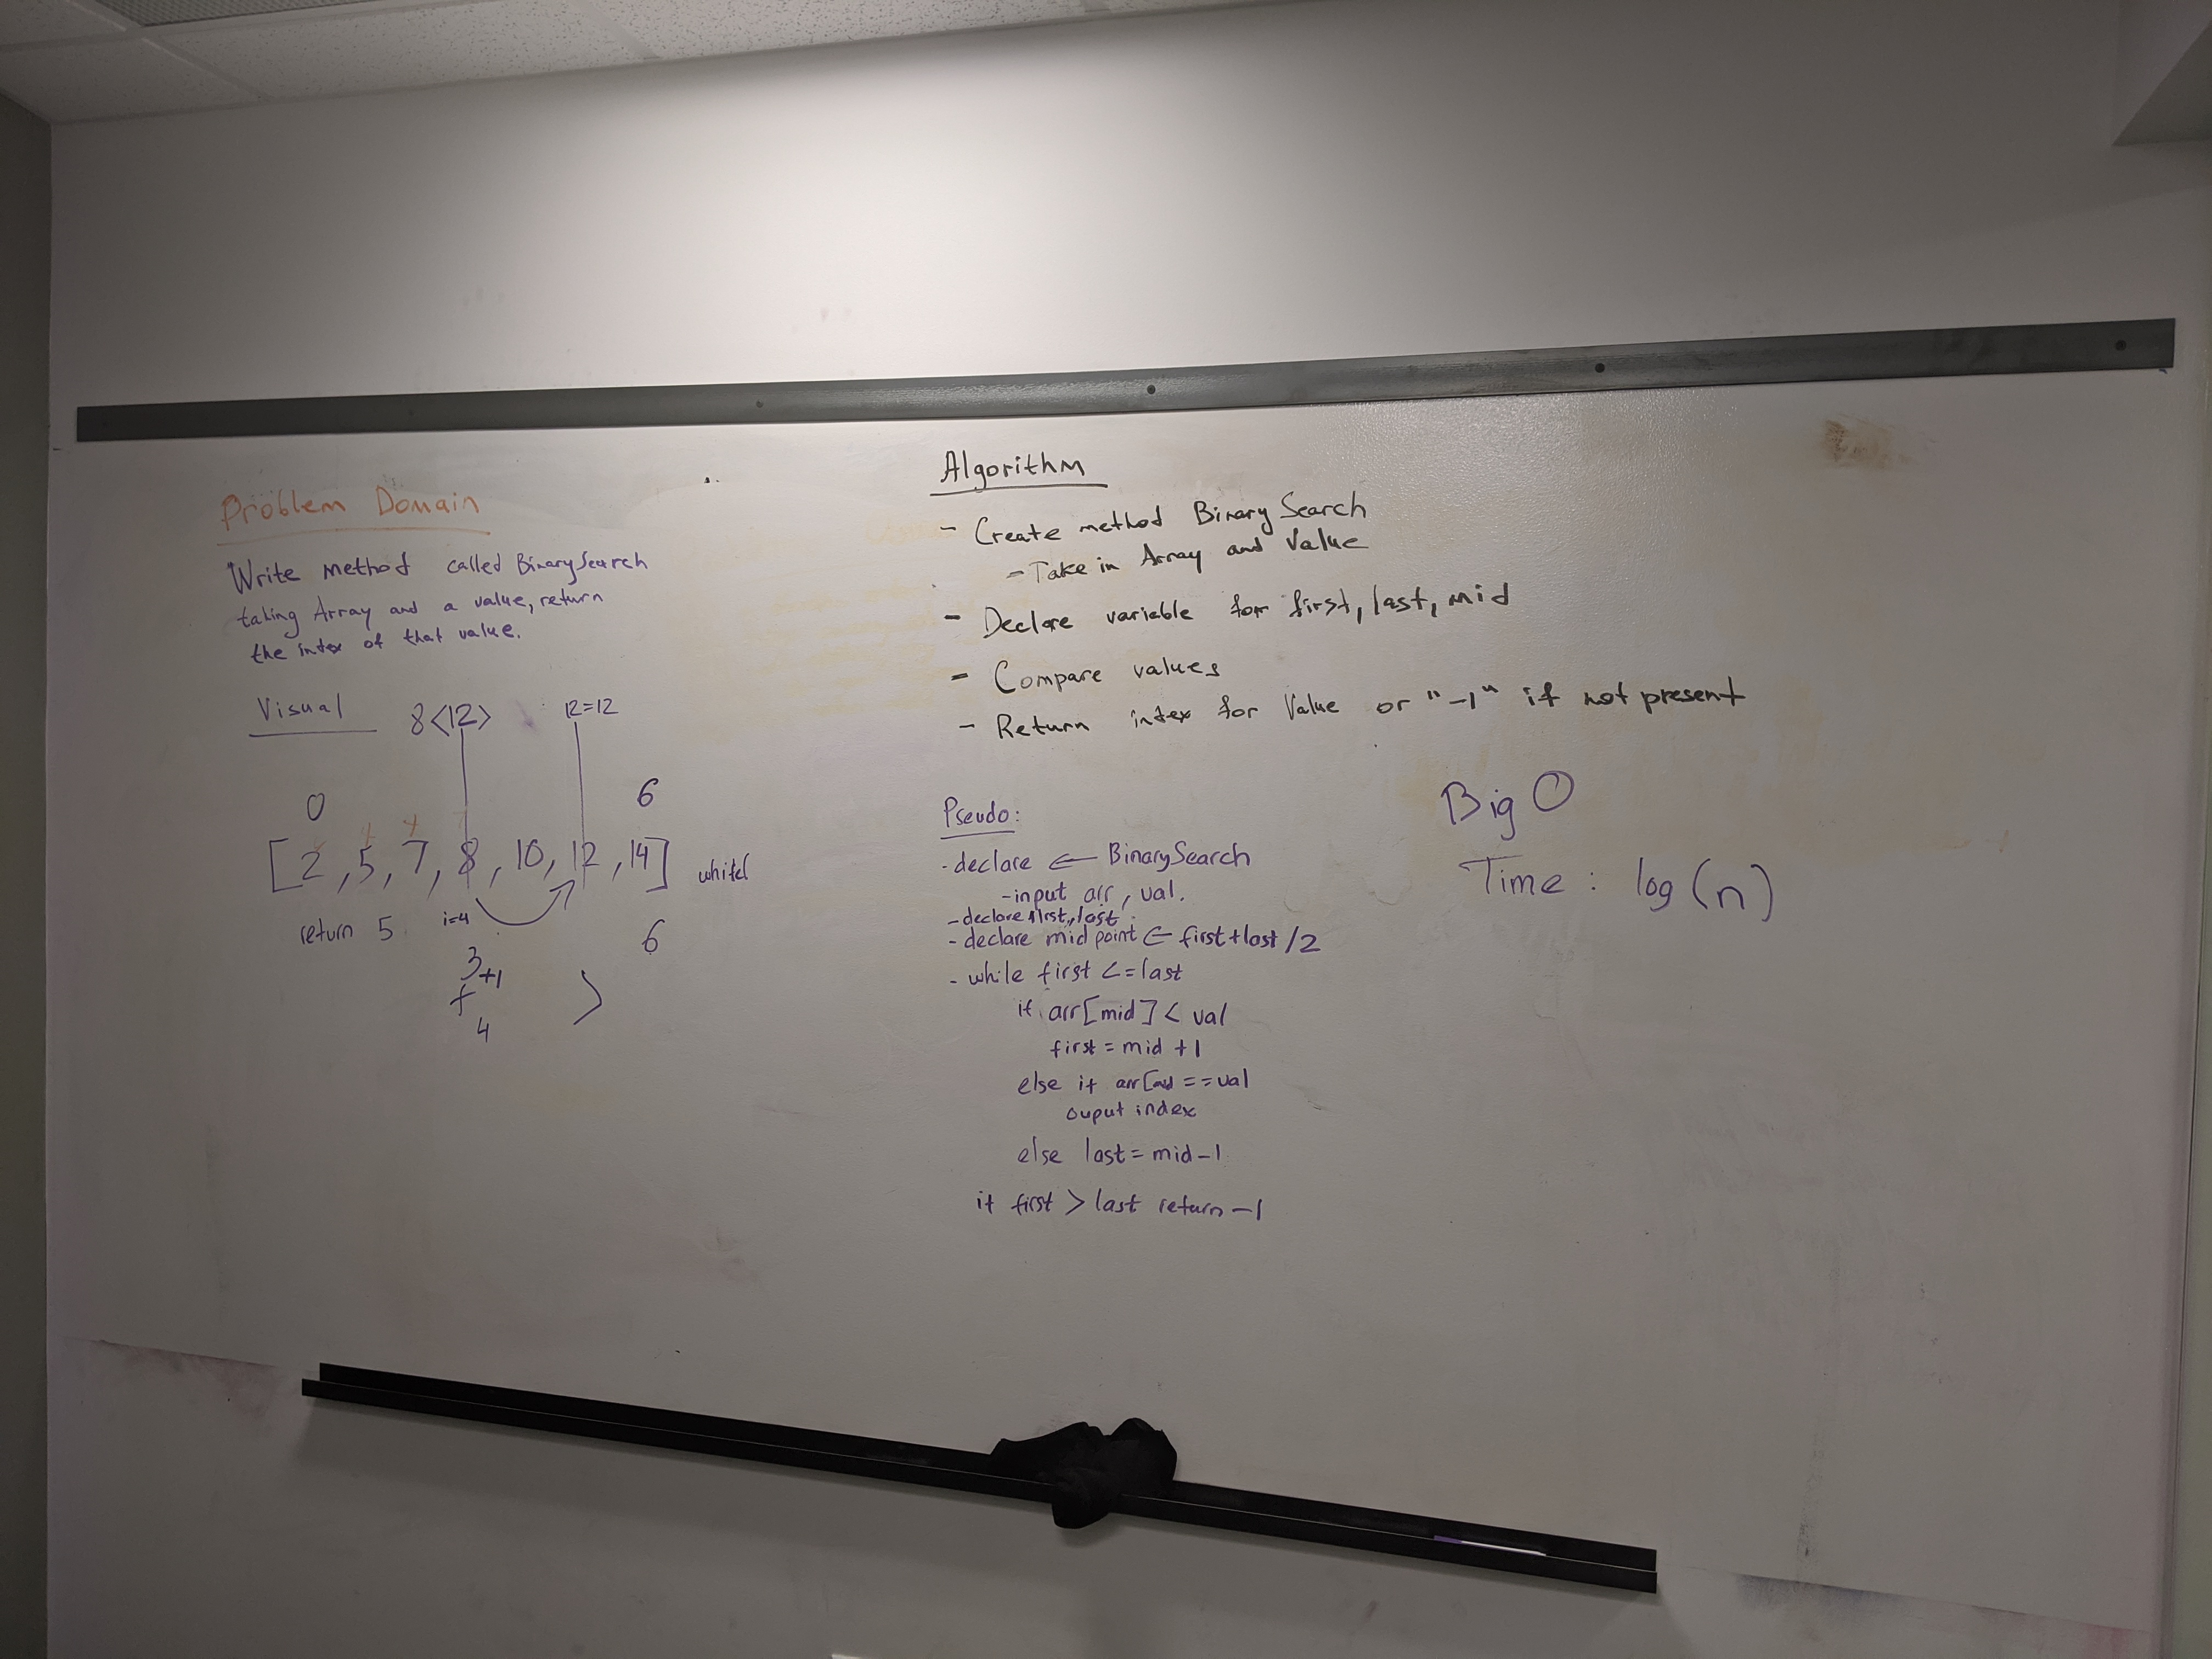 Problem Domain
Write method called BinarySearch
taking Array and a value, return
the index of that value.
Visual
8<12>
12=12
0
6
[2,5,7,8,10,12,14]
return 5
i=4
6
3+1
f
4
>
Algorithm
- Create method Binary Search
- Take in Array and Value
- Declare variable for first, last, mid
- Compare values
- Return index for Value or "-1" if not present
Pseudo:
- declare ← BinarySearch
- input arr, val.
- declare first, last.
- declare mid point ← first+last/2
- while first <= last
if arr[mid] < val
first = mid +1
else if arr[mid ==val
ouput index
else last = mid-1
if first > last return -1
Big O
Time: log(n)